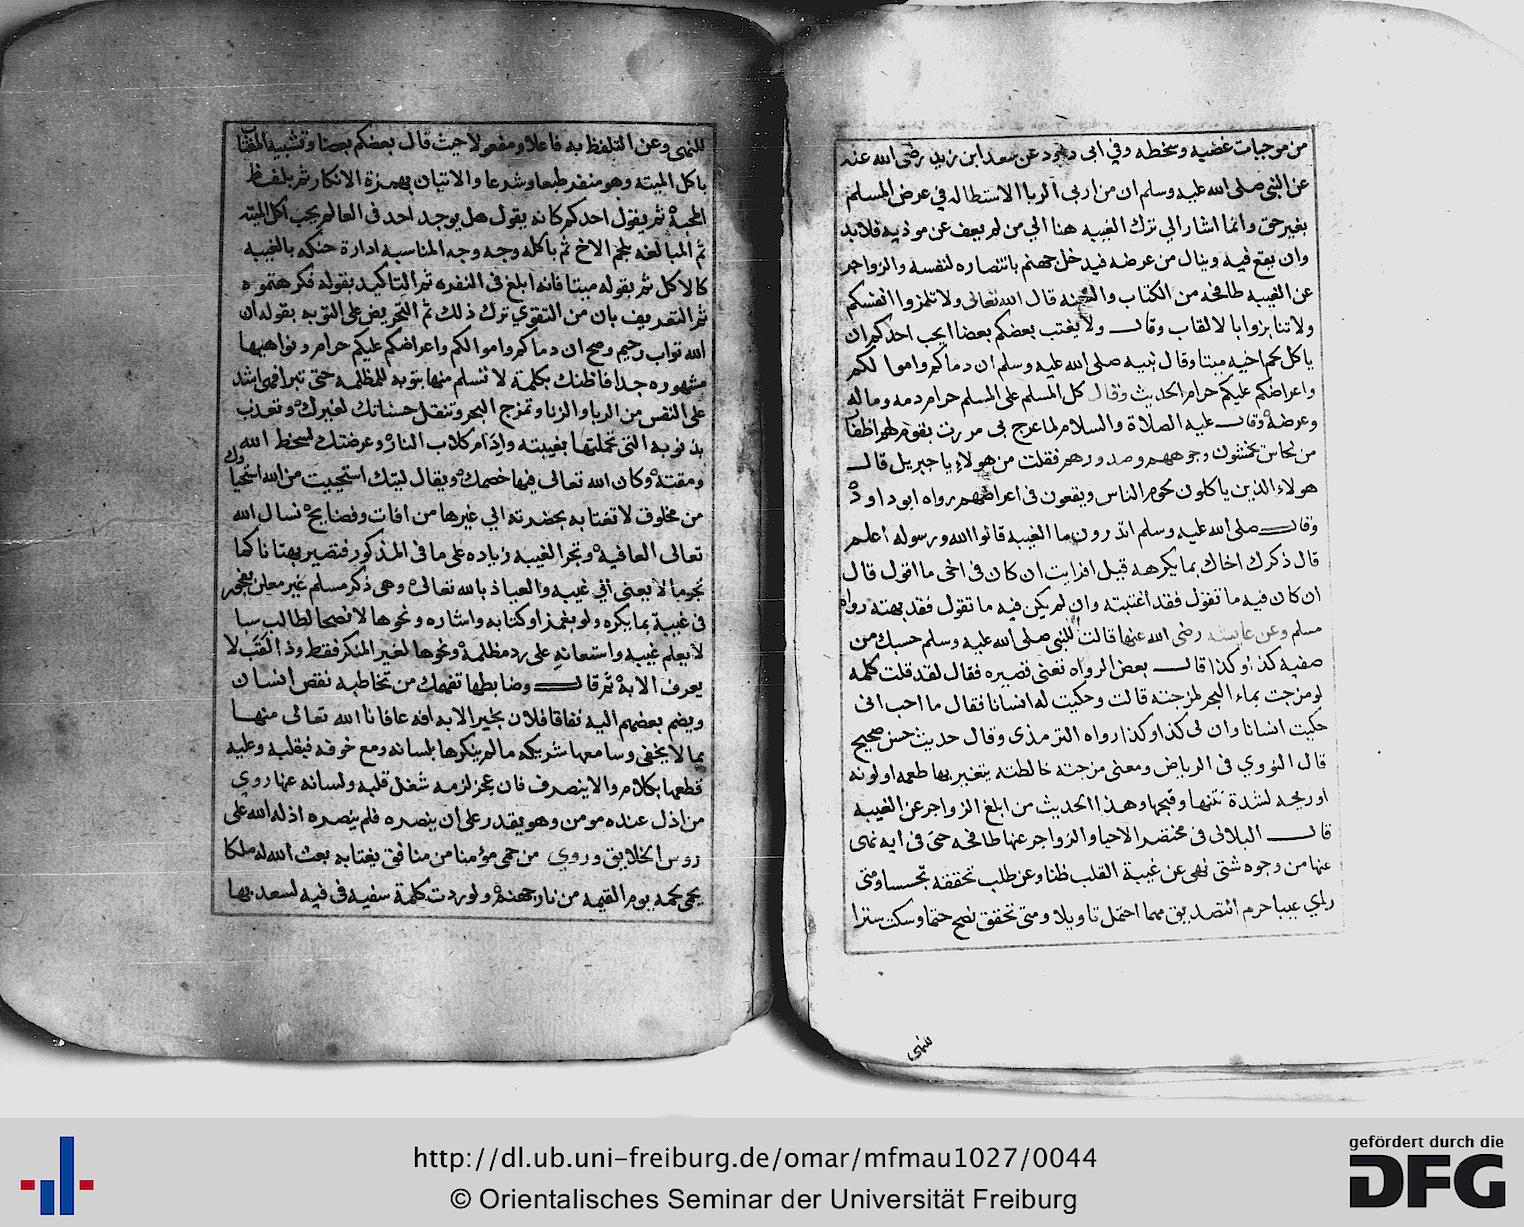 من موجبات غضبه وسخطه وفي ابى داود عن سعد ابن زيد رضى الله عنه
عن النبى صلى الله عليه وسلم ان من اربى الربا الاستطاله في عرض المسلم
بغير حق وانما اشار الي ترك الغيبه هنا الي من لم يعف عن موذيه فلابد
وان يقع فيه وينال من عرضه فيدخل جهنم بانتصاره لنفسه والزواجر
عن الغيبه طافحه من الكتاب والسنه قال الله تعالى ولا تلمزوا انفسكم
ولا تنابزوا بالالقاب وقال ولا يغتب بعضكم بعضا ايحب احدكم ان
ياكل لحم اخيه ميتا وقال نبيه صلى الله عليه وسلم ان دماكم واموالكم
واعراضكم عليكم حرام الحديث وقال كل المسلم على المسلم حرام دمه وماله
وعرضه وقال عليه الصلاة والسلام لما عرج بى مررت بقوم لهم اظفار
من نحاس يخمشون وجوههم وصدورهم فقلت من هولاء يا جبريل قال
هولاء الذين ياكلون لحوم الناس ويقعون فى اعراضهم رواه ابو داود
وقال صلى الله عليه وسلم اتدرون ما الغيبه قالوا الله ورسوله اعلم
قال ذكرك اخاك بما يكرهه قيل افرايت ان كان فى اخى ما اقول قال
ان كان فيه ما تقول فقد اغتبته وان لم يكن فيه ما تقول فقد بهته رواه
مسلم وعن عايشه رضى الله عنها قالت للنبى صلى الله عليه وسلم حسبك من
صفيه كذا وكذا قال بعض الرواه تعنى قصيره فقال لقد قلت كلمه
لو مزجت بماء البحر لمزجته قالت وحكيت له انسانا فقال ما احب انى
حكيت انسانا وان لى كذا وكذا رواه الترمذى وقال حديث حسن صحيح
قال النووي فى الرياض ومعنى مزجته خالطته يتغير بها طعمه او لونه
او ريحه لشدة نتنها وقبحها وهذا الحديث من ابلغ الزواجر عن الغيبه
قال البلالى فى مختصر الاحيا والزواجر عنها طافحه حتى فى ايه نهى
عنها من وجوه شتى نهى عن غيبة القلب ظنا وعن طلب تحققه تجسسا ومتى
راي عيبا حرم التصديق مهما احتمل تاويلا ومتى تحقق نصح حتما وسكت سترا
للنهى
للنهى وعن التلفظ به فاعلا ومفعولا حيث قال بعضكم بعضا وتشبيه المغتاب
باكل الميته وهو منفر طبعا وشرعا والاتيان بهمزة الانكار ثم بلفظ
المحبة ثم بقول احدكم كانه يقول هل يوجد احد فى العالم يحب اكل الميته
ثم المبالغه بلحم الاخ ثم باكله وجه وجه المناسبه ادارة حنكه بالغيبه
كالاكل ثم بقوله ميتا فانه ابلغ فى النفره ثم التاكيد بقوله فكرهتموه
ثم التعريف بان من التقوي ترك ذلك ثم التحريض على التوبه بقوله ان
الله تواب رحيم وصح ان دماكم واموالكم واعراضكم عليكم حرام ونواهيها
مشهوره جدا فاظنك بكلمة لا تسلم منها بتوبه للمظلمه حتى تبرا فهى اشد
على النفس من الربا والزنا وتمزج البحر وتنقل حسناتك لغيرك وتعذب
بذنوبه التى تحملتها بغيبته وادام كلاب النار وعرضتك لسخط الله
ومقته وكان الله تعالى فيها خصمك ويقال ليتك استحييت من الله استحياوك
من مخلوق لا تغتابه بحضرته الي غيرها من افات وفضايح نسال الله
تعالى العافيه وتجر الغيبه زياده على ما فى المذكور فتصير بهتانا كما
تجر ما لا يعنى الي غيبه والعياذ بالله تعالى وهى ذكر مسلم غير معلن بفجر
فى غيبة بما يكره ولو بغمز او كتابه واشاره ونحوها لا نصحا لطالب سيا
لا يعلم غيبه واستعانة على رد مظلمة ونحوها لغير المنكر فقط وذا لقب لا
يعرف الا به ثم قال وضابطها تفهمك من تخاطبه نقص انسان
ويضم بعضهم اليه نفاقا فلان بخير الا به افه عافانا الله تعالى منها
بما لا يخفى وسامعها شريكه ما لم ينكرها بلسانه ومع خوفه فبقلبه وعليه
قطعها بكلام والا ينصرف فان عجز لزمه شغل قلبه ولسانه عنها روي
من اذل عنده مومن وهو يقدر على ان ينصره فلم ينصره اذله الله على
روس الخلايق وروي من حمى مؤمنا من منافق يغتابه بعث الله له ملكا
يحمى لحمه يوم القيمه من نار جهنم ولو ردت كلمة سفيه فى فيه لسعد بها
http://dl.ub.uni-freiburg.de/omar/mfmau1027/0044
© Orientalisches Seminar der Universität Freiburg
gefördert durch die
DFG